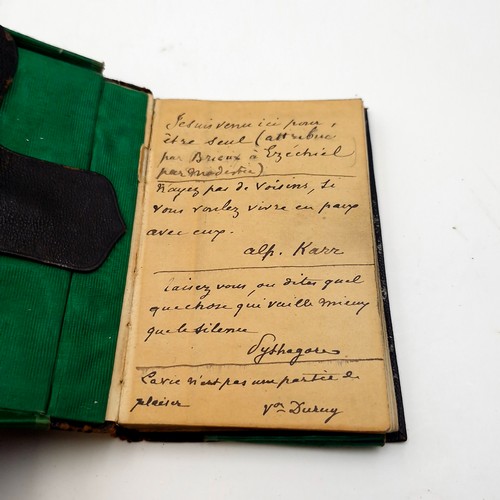 Je suis venu ici pour,
être seul (attribué
par Brieux à Ezéchiel
par modestie)
N'ayez pas de voisins, si
vous voulez vivre en paix
avec eux.
alp. Karr
Taisez vous, ou dites quel
que chose qui vaille mieux
que le silence
Pythagore
La vie n'est pas une partie de
plaisir
Vor Duruy